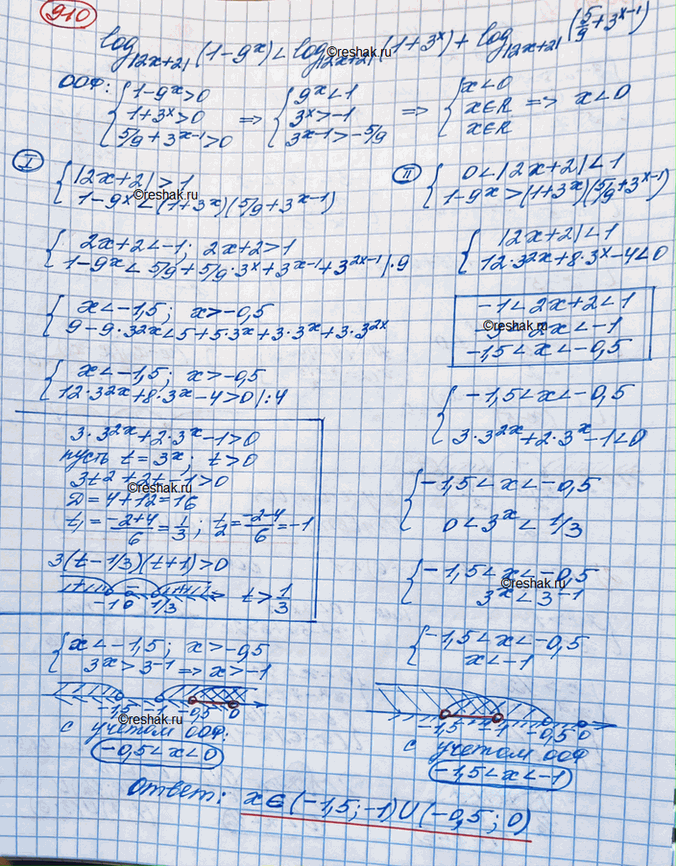 910
log|2x+2| (1-9ˣ) < log|2x+2| (1+3ˣ) + log|2x+2| (5/9+3ˣ⁻¹)
©reshak.ru
ООФ: { 1-9ˣ>0 ⇒ { 9ˣ<1 ⇒ { x<0 ⇒ x<0
1+3ˣ>0 3ˣ>-1 x∈R
5/9+3ˣ⁻¹>0 3ˣ⁻¹>-5/9 x∈R
I
{ |2x+2|>1
1-9ˣ<(1+3ˣ)(5/9+3ˣ⁻¹)
©reshak.ru
{ 2x+2<-1; 2x+2>1
1-9ˣ<5/9+5/9·3ˣ+3ˣ⁻¹+3²ˣ⁻¹ |·9
{ x<-1,5; x>-0,5
9-9·3²ˣ<5+5·3ˣ+3·3ˣ+3·3²ˣ
{ x<-1,5; x>-0,5
12·3²ˣ+8·3ˣ-4>0 |:4
3·3²ˣ+2·3ˣ-1>0
пусть t=3ˣ; t>0
3t²+2t-1>0
©reshak.ru
D=4+12=16
t₁=(-2+4)/6=1/3; t₂=(-2-4)/6=-1
3(t-1/3)(t+1)>0
+ - +
-1 0 1/3 t>1/3
{ x<-1,5; x>-0,5
3ˣ>3⁻¹ ⇒ x>-1
-1,5 -1 -0,5 0
©reshak.ru
с учетом ООФ:
-0,5<x<0
II
{ 0<|2x+2|<1
1-9ˣ>(1+3ˣ)(5/9+3ˣ⁻¹)
{ |2x+2|<1
12·3²ˣ+8·3ˣ-4<0
-1<2x+2<1
©reshak.ru
-3<2x<-1
-1,5<x<-0,5
{ -1,5<x<-0,5
3·3²ˣ+2·3ˣ-1<0
{ -1,5<x<-0,5
0<3ˣ<1/3
{ -1,5<x<-0,5
©reshak.ru
3ˣ<3⁻¹
{ -1,5<x<-0,5
x<-1
-1,5 -1 -0,5 0
с учетом ООФ
-1,5<x<-1
Ответ: x∈(-1,5;-1)∪(-0,5;0)